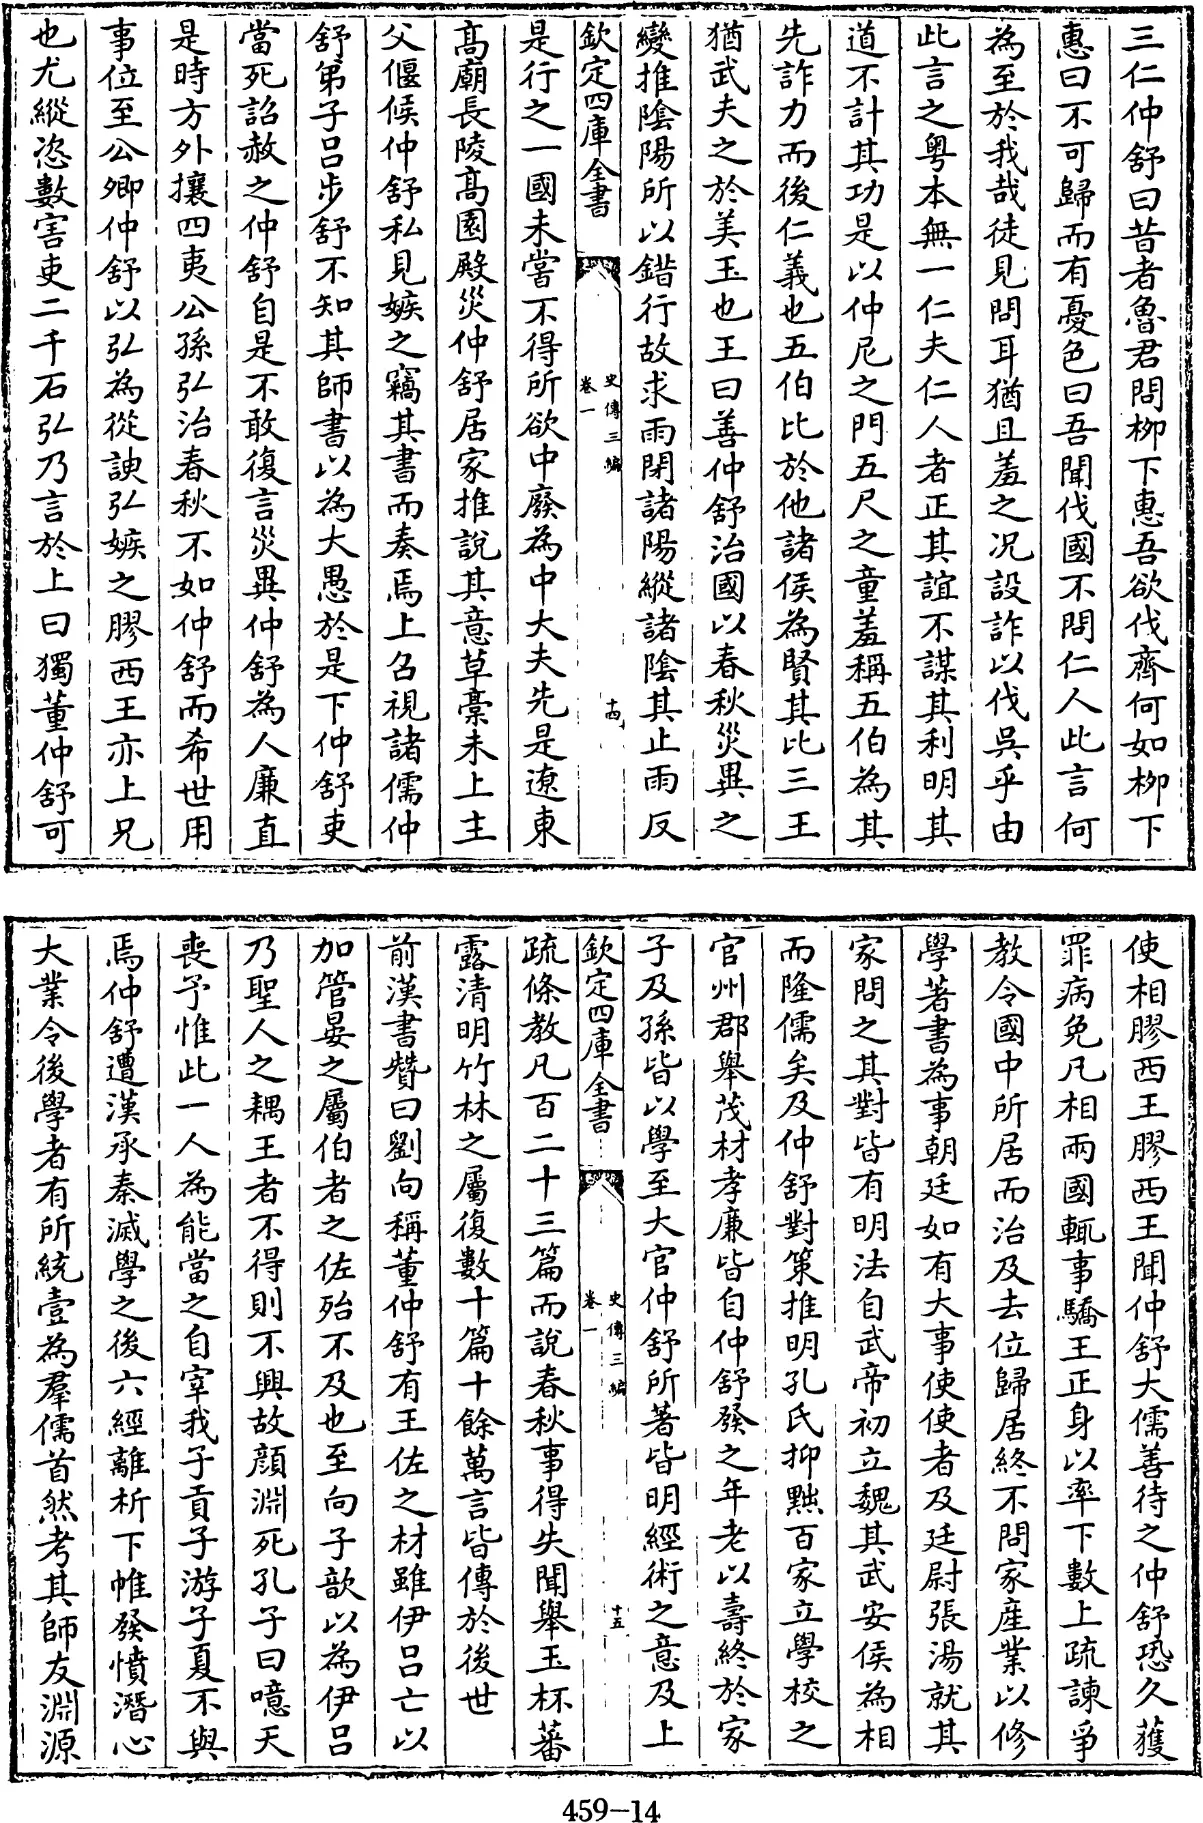 三仁仲舒曰昔者魯君問栁下惠吾欲伐齊何如栁下
惠曰不可歸而有憂色曰吾聞伐國不問仁人此言何
為至於我哉徒見問耳猶且羞之况設詐以伐吳乎由
此言之粤本無一仁夫仁人者正其誼不謀其利明其
道不計其功是以仲尼之門五尺之童羞稱五伯為其
先詐力而後仁義也五伯比於他諸侯為賢其比三王
猶武夫之於美玉也王曰善仲舒治國以春秋災異之
變推陰陽所以錯行故求雨閉諸陽縱諸陰其止雨反
欽定四庫全書
史傳三編
卷一
十四
是行之一國未嘗不得所欲中廢為中大夫先是遼東
髙廟長陵髙園殿災仲舒居家推說其意草藁未上主
父偃候仲舒私見嫉之竊其書而奏焉上召視諸儒仲
舒弟子吕步舒不知其師書以為大愚於是下仲舒吏
當死詔赦之仲舒自是不敢復言災異仲舒為人廉直
是時方外攘四夷公孫弘治春秋不如仲舒而希世用
事位至公卿仲舒以弘為從諛弘嫉之膠西王亦上兄
也尤縱恣數害吏二千石弘乃言於上曰獨董仲舒可
使相膠西王膠西王聞仲舒大儒善待之仲舒恐久獲
罪病免凡相兩國輒事驕王正身以率下數上疏諫爭
教令國中所居而治及去位歸居終不問家産業以修
學著書為事朝廷如有大事使使者及廷尉張湯就其
家問之其對皆有明法自武帝初立魏其武安侯為相
而隆儒矣及仲舒對策推明孔氏抑黜百家立學校之
官州郡舉茂材孝廉皆自仲舒發之年老以壽終於家
子及孫皆以學至大官仲舒所著皆明經術之意及上
欽定四庫全書
史傳三編
卷一
十五
疏條教凡百二十三篇而說春秋事得失聞舉玉杯蕃
露清明竹林之屬復數十篇十餘萬言皆傳於後世
前漢書贊曰劉向稱董仲舒有王佐之材雖伊吕亡以
加管晏之屬伯者之佐殆不及也至向子歆以為伊吕
乃聖人之耦王者不得則不興故顔淵死孔子曰噫天
喪予惟此一人為能當之自宰我子貢子游子夏不與
焉仲舒遭漢承秦滅學之後六經離析下帷發憤潛心
大業令後學者有所統壹為羣儒首然考其師友淵源
459-14